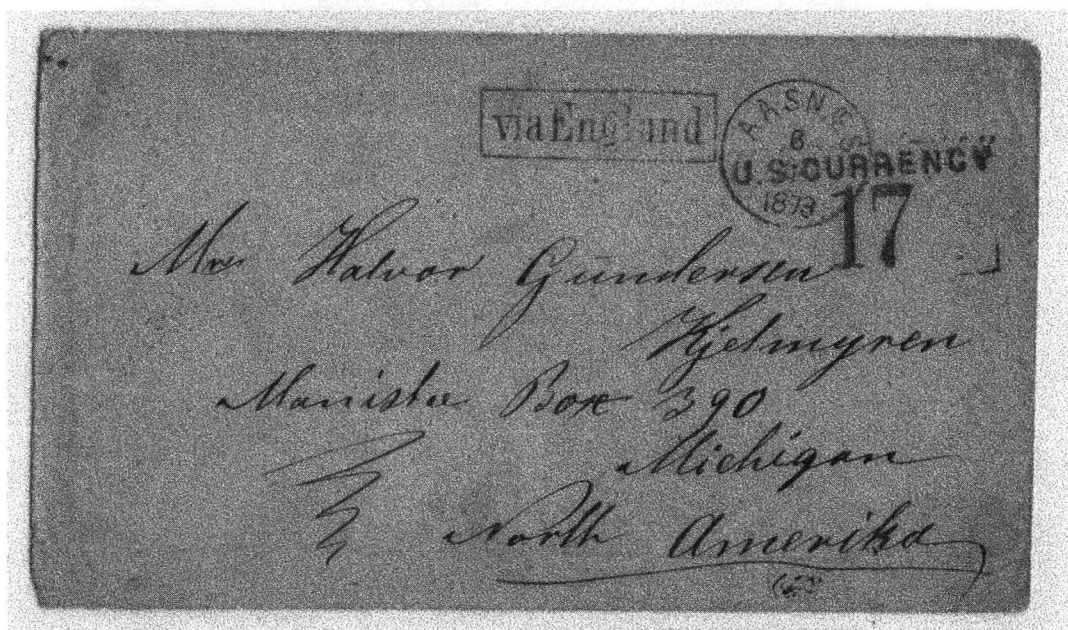 via England
AASN.
6
U.S. CURRENCY
1873
17
Mr Halvor Gundersen
Kjelmyren
Manistee Box 390
Michigan
North Amerika